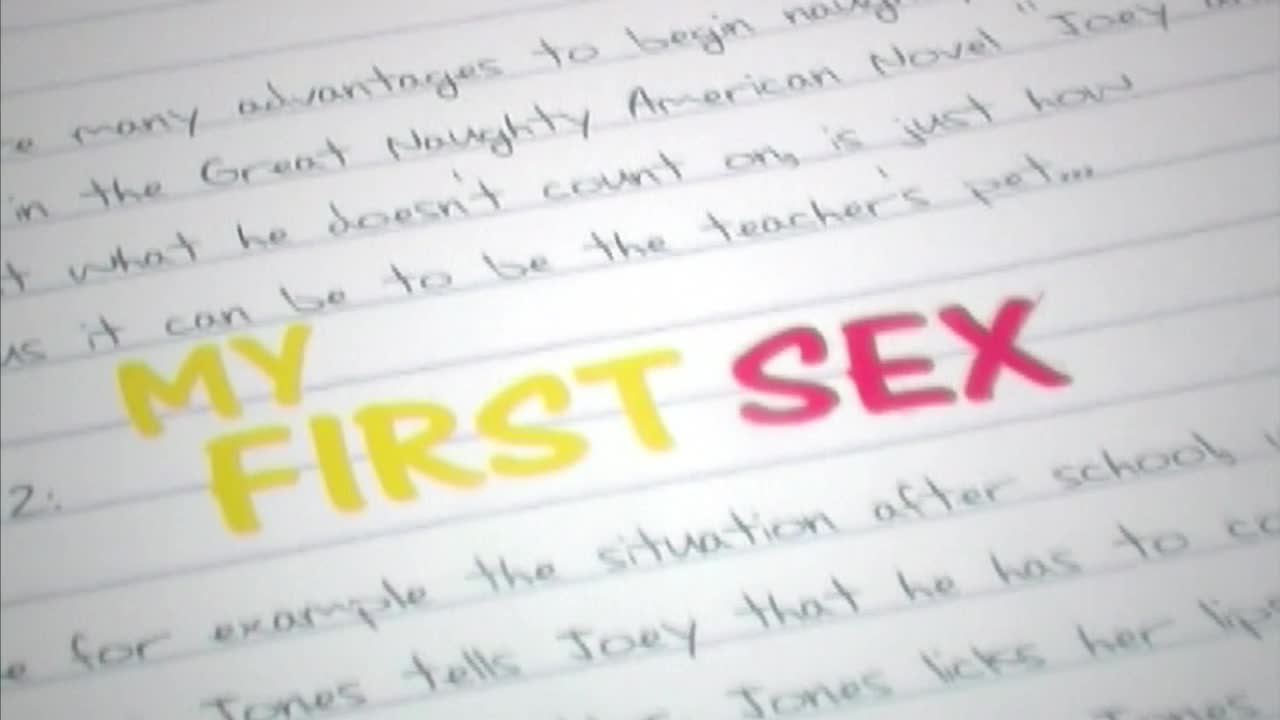 many advantages to begin
in the Great Naughty American Novel "Joey
what he doesn't count on, is just how
it can be to be the teacher's pet...
MY
FIRST SEX
2:
for example the situation after school,
Jones tells Joey that he has to
Jones licks her lips
Jones